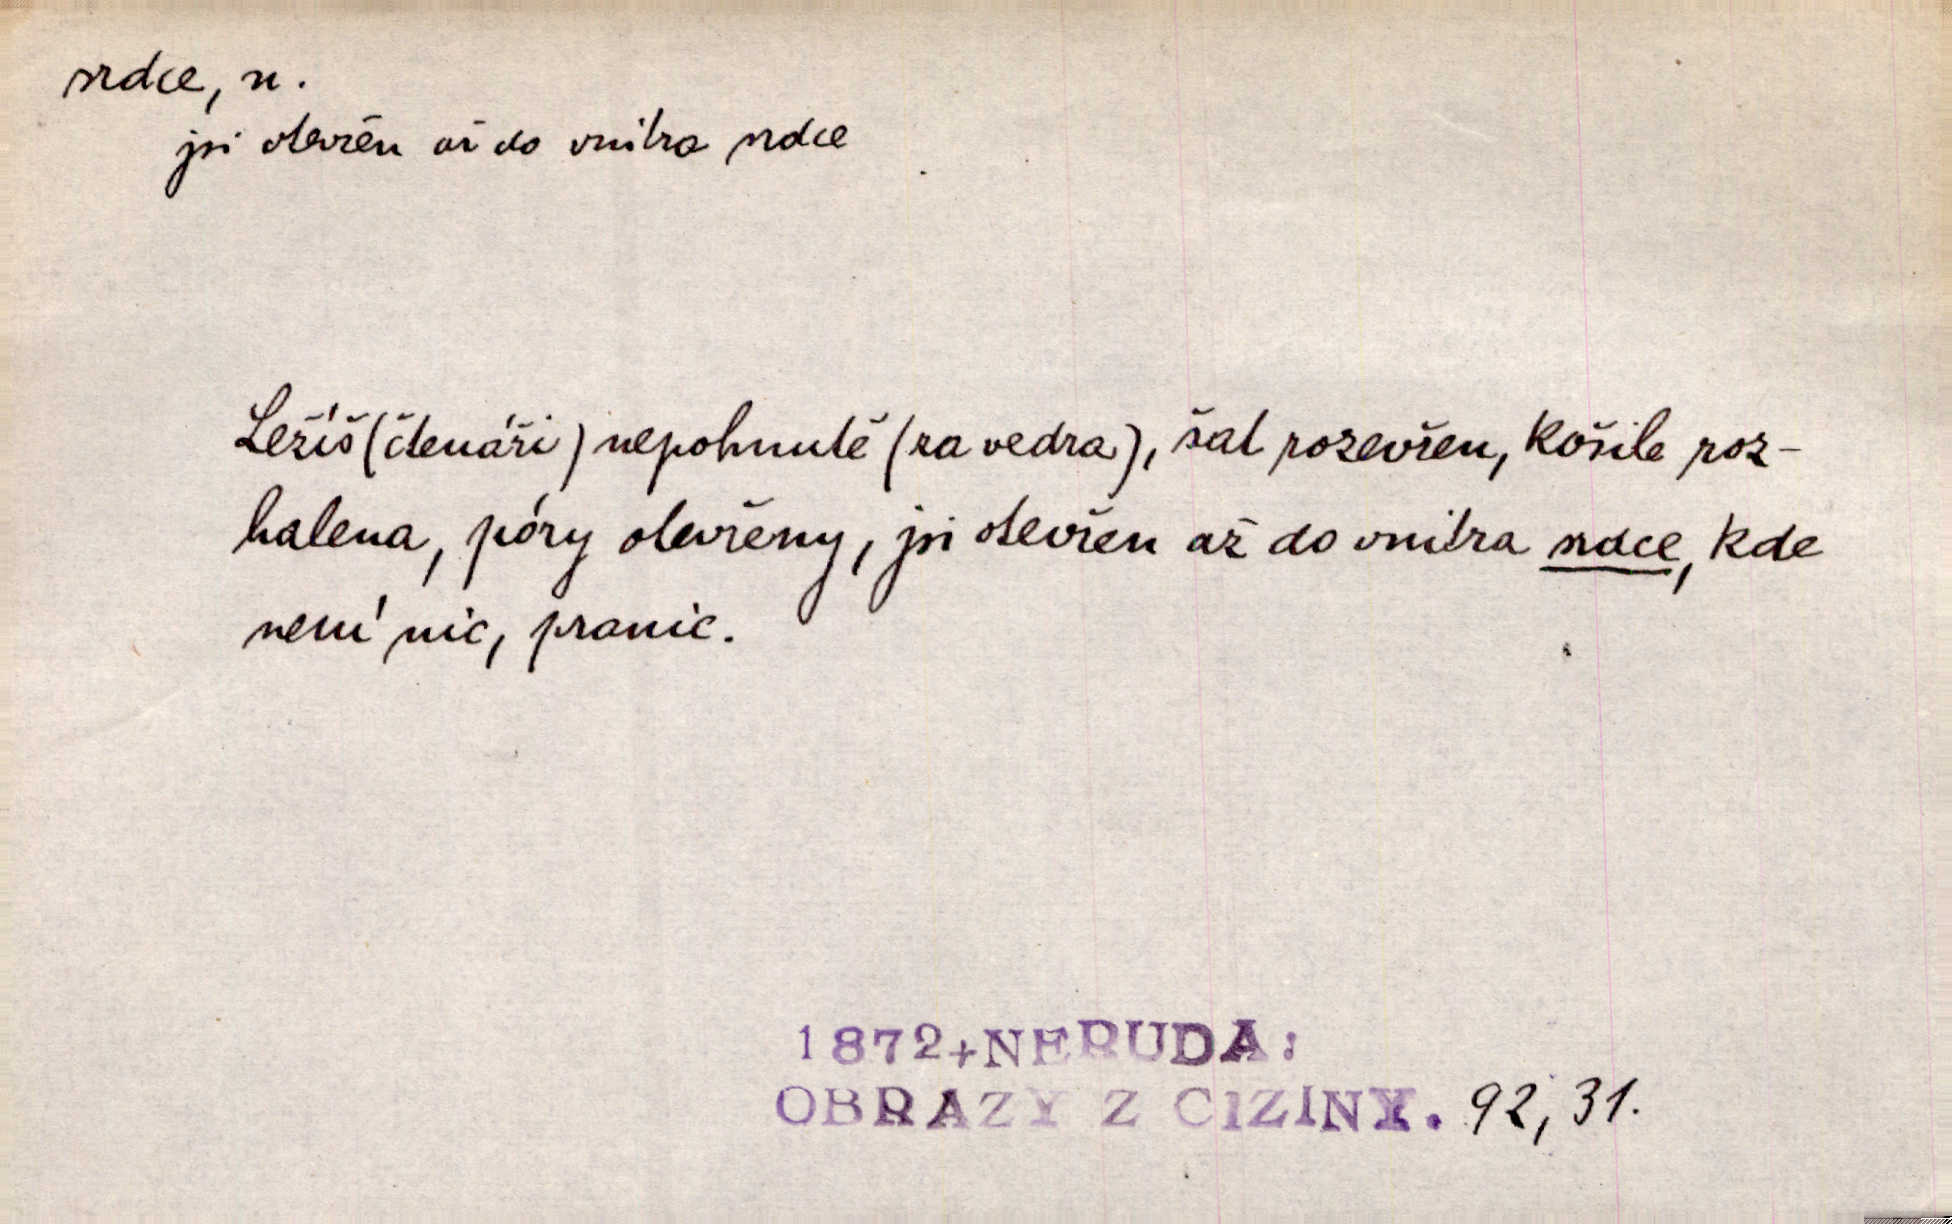 srdce, n.
jsi otevřen až do vnitra srdce
Ležíš (čtenáři) nepohnutě (za vedra), šat rozevřen, košile roz-
halena, póry otevřeny, jsi otevřen až do vnitra srdce, kde
není nic, pranic.
1872+NERUDA:
OBRAZY Z CIZINY. 92, 31.